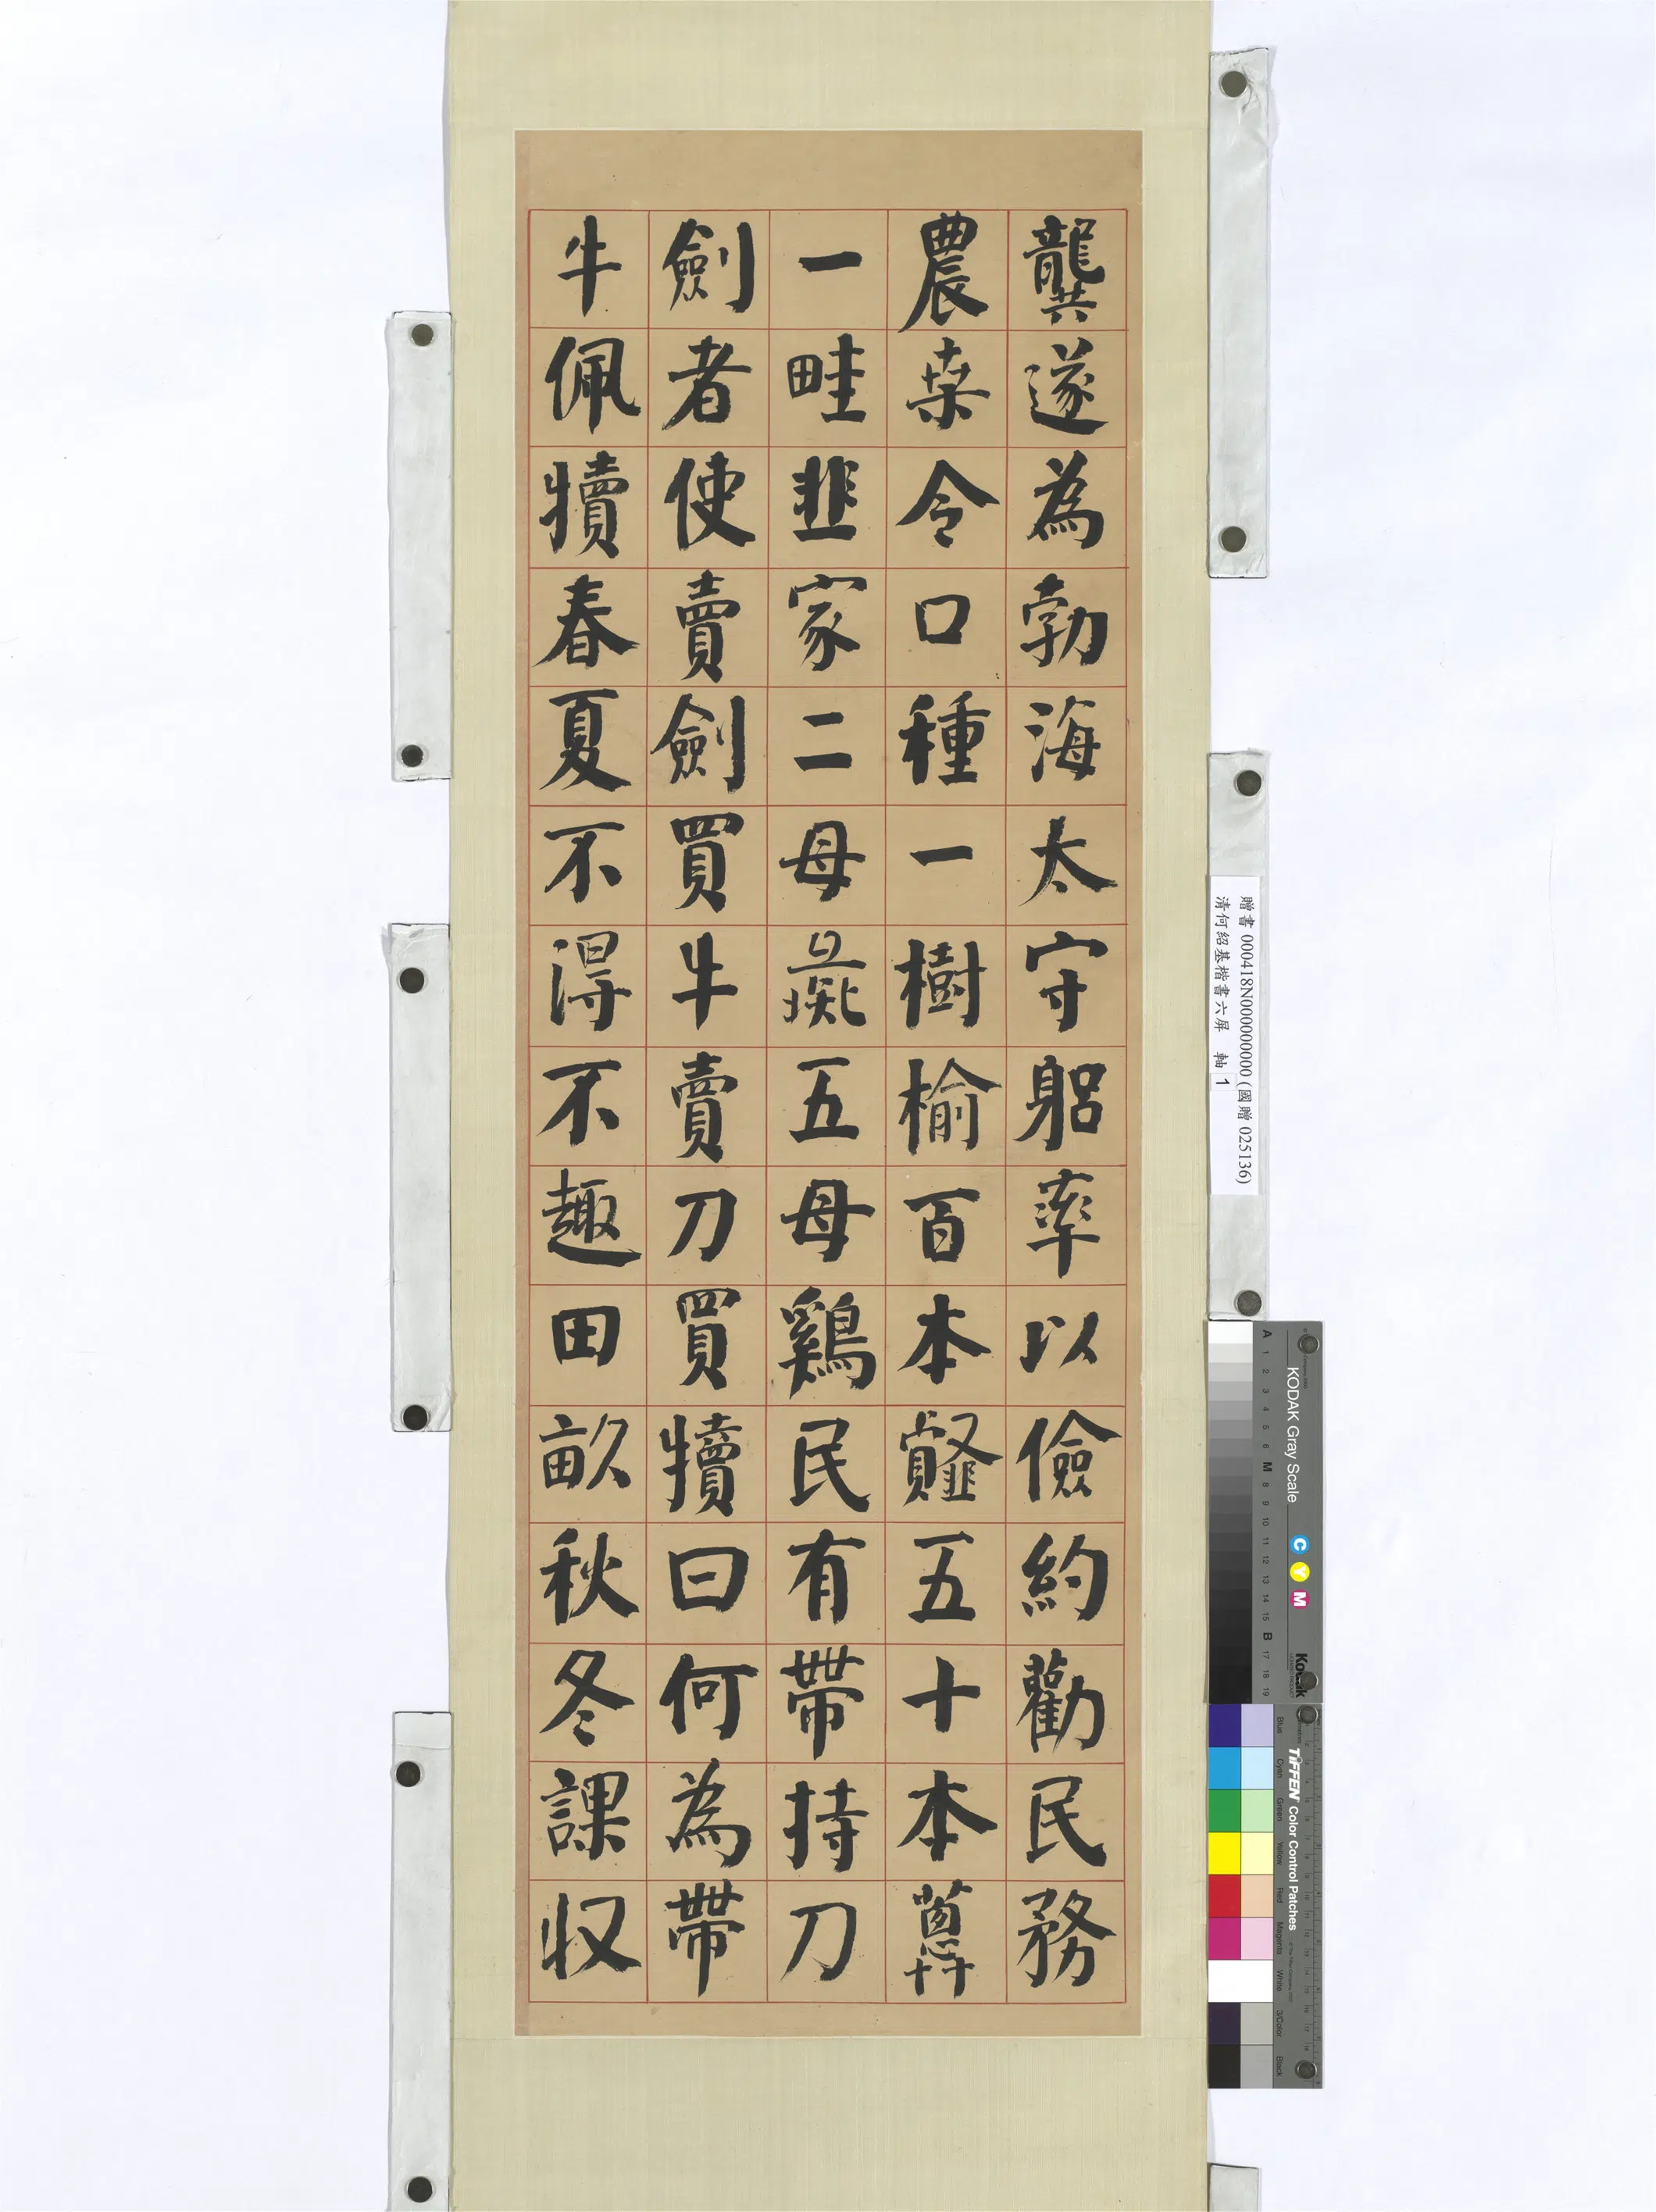 龔遂為勃海太守躳率以儉約勸民務
農桒令口種一樹榆百本䪥五十本蔥
一畦韭家二母彘五母鷄民有帶持刀
劍者使賣劍買牛賣刀買犢曰何為帶
牛佩犢春夏不得不趣田畝秋冬課収
贈書 000418N000000000 (國贈 025136)
清何紹基楷書六屏 軸 1
KODAK Gray Scale
C Y M
Kodak
A 1 2 3 4 5 6 M 8 9 10 11 12 13 14 15 B 17 18 19
TIFFEN Color Control Patches
Blue Cyan Green Yellow Red Magenta White 3/Color Black